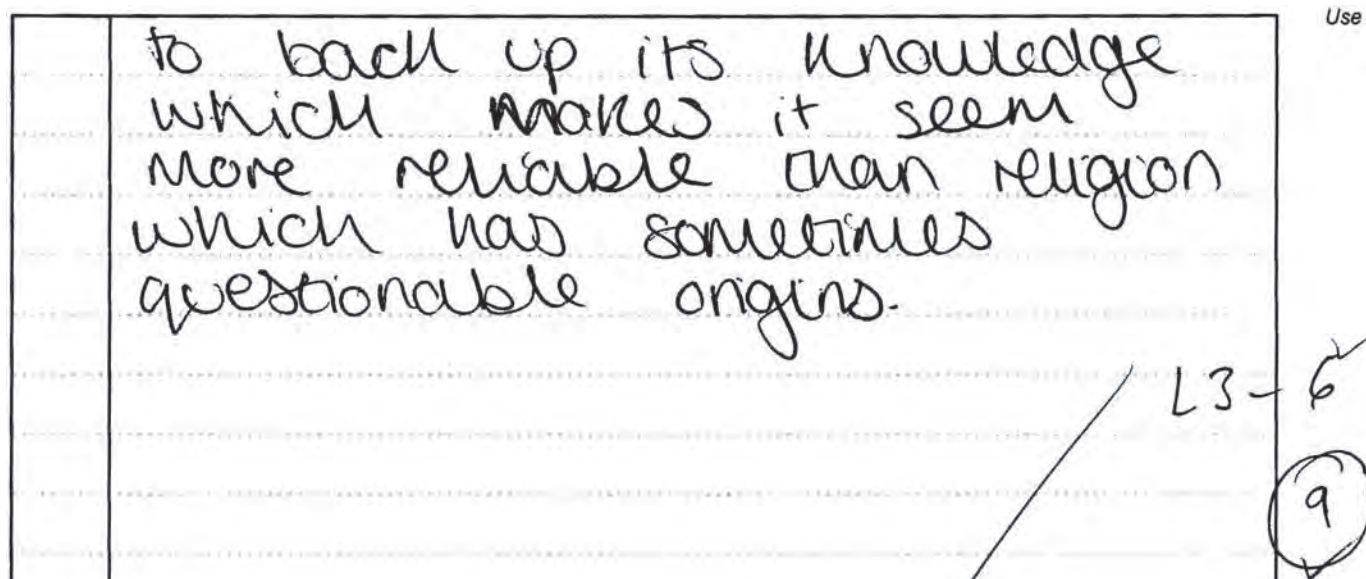 Use
to back up its knowledge
which makes it seem
more reliable than religion
which has sometimes
questionable origins.
L3 - 6
9